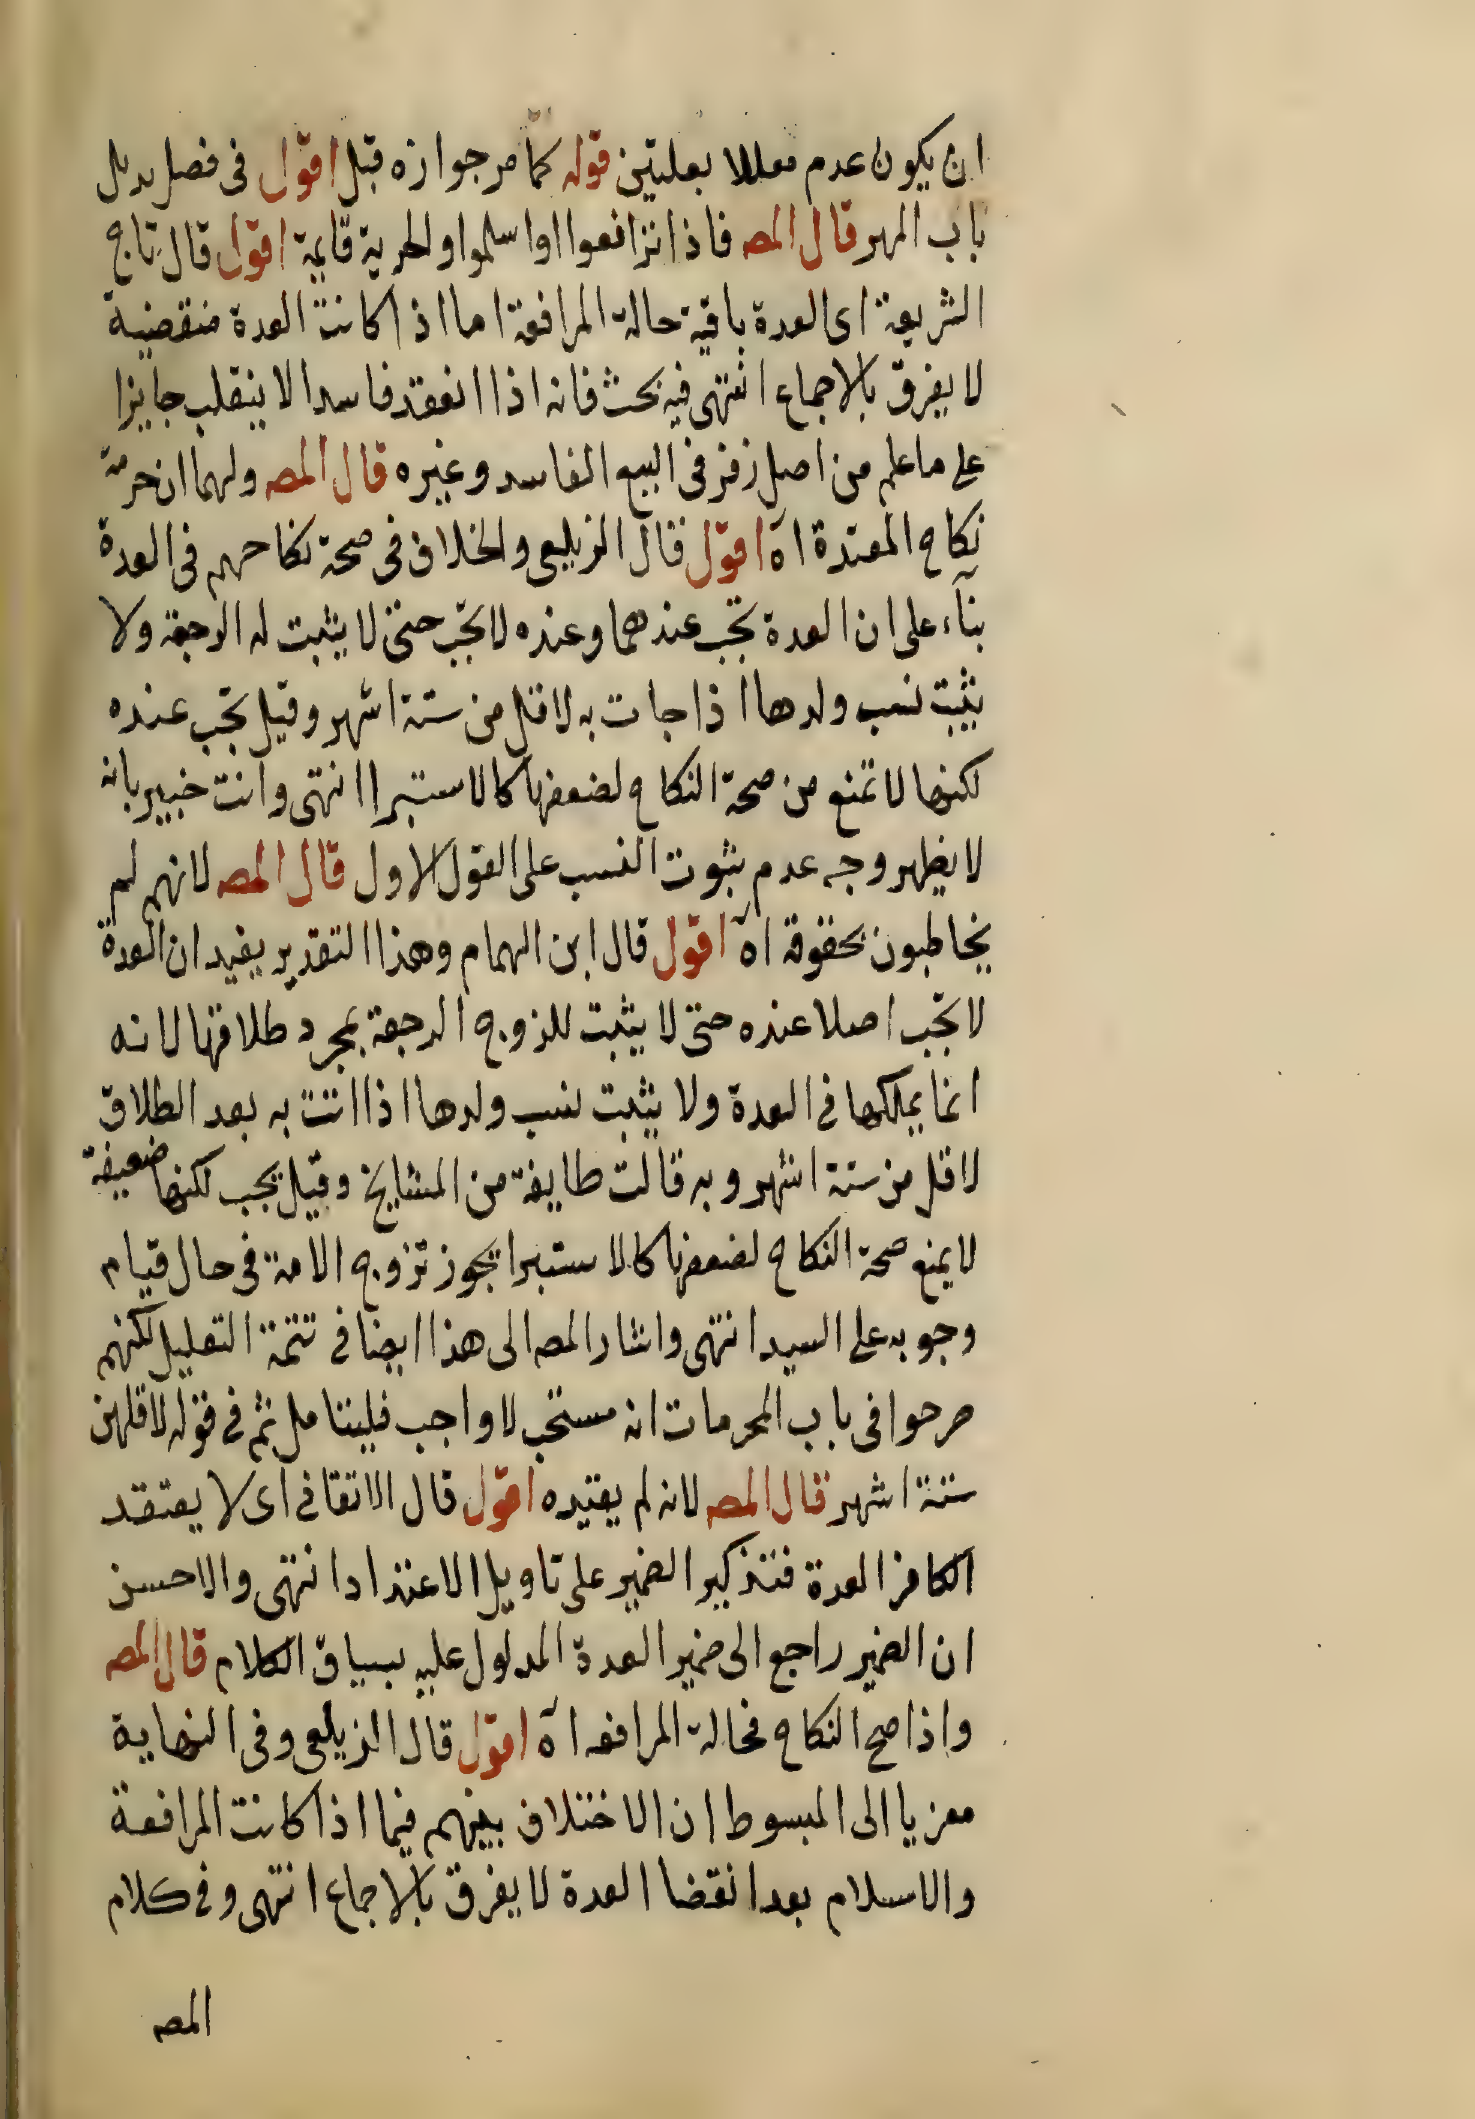 ان يكون عدم معللا بعلتين قوله كما مر جوازه قبل اقول فى فصل بديل
باب المهر قال المصـ فاذا ترافعوا او اسلموا والحرية قايمة اقول قال تاج
الشريعة اى العدة باقية حالة المرافعة اما اذا كانت العدة منقضية
لا يفرق بالاجماع انتهى فيه بحث فانه اذا انعقد فاسدا لا ينقلب جايزا
على ما علم من اصل زفر فى البيع الفاسد وغيره قال المصـ ولهما ان حرمة
نكاح المعتدة اه اقول قال الزيلعى والخلاف فى صحة نكاحهم فى العدة
بناء على ان العدة تجب عندهما وعنده لا تجب حتى لا يثبت له الرجعة ولا
يثبت نسب ولدها اذا جات به لاقل من ستة اشهر وقيل تجب عنده
لكنها لا تمنع من صحة النكاح لضعفها كالاستبرا انتهى وانت خبير بانه
لا يظهر وجه عدم ثبوت النسب على القول الاول قال المصـ لانهم لم
يخاطبون بحقوقه اه اقول قال ابن الهمام وهذا التقدير يفيد ان العدة
لا تجب اصلا عنده حتى لا يثبت للزوج الرجعة بمجرد طلاقها لانه
انما يملكها فى العدة ولا يثبت نسب ولدها اذا اتت به بعد الطلاق
لاقل من ستة اشهر وبه قالت طايفة من المشايخ وقيل يجب لكنها ضعيفة
لا يمنع صحة النكاح لضعفها كالاستبرا يجوز تزوج الامة فى حال قيام
وجوبه على السيد انتهى واشار المصـ الى هذا ايضا فى تتمة التعليل لكنهم
صرحوا فى باب المحرمات انه مستحب لا واجب فليتامل ثم فى قوله لاقل من
ستة اشهر قال المصـ لانه لم يعتيده اقول قال الاتقانى اى لا يعتقد
الكافر العدة فتذكير الضمير على تاويل الاعتداد انتهى والاحسن
ان الضمير راجع الى ضمير العدة المدلول عليه بسياق الكلام قال المصـ
واذا صح النكاح فحالة المرافعه اه اقول قال الزيلعى وفى النهاية
معزيا الى المبسوط ان الاختلاف بينهم فيما اذا كانت المرافعة
والاسلام بعد انقضا العدة لا يفرق بالاجماع انتهى وفى كلام
المصـ